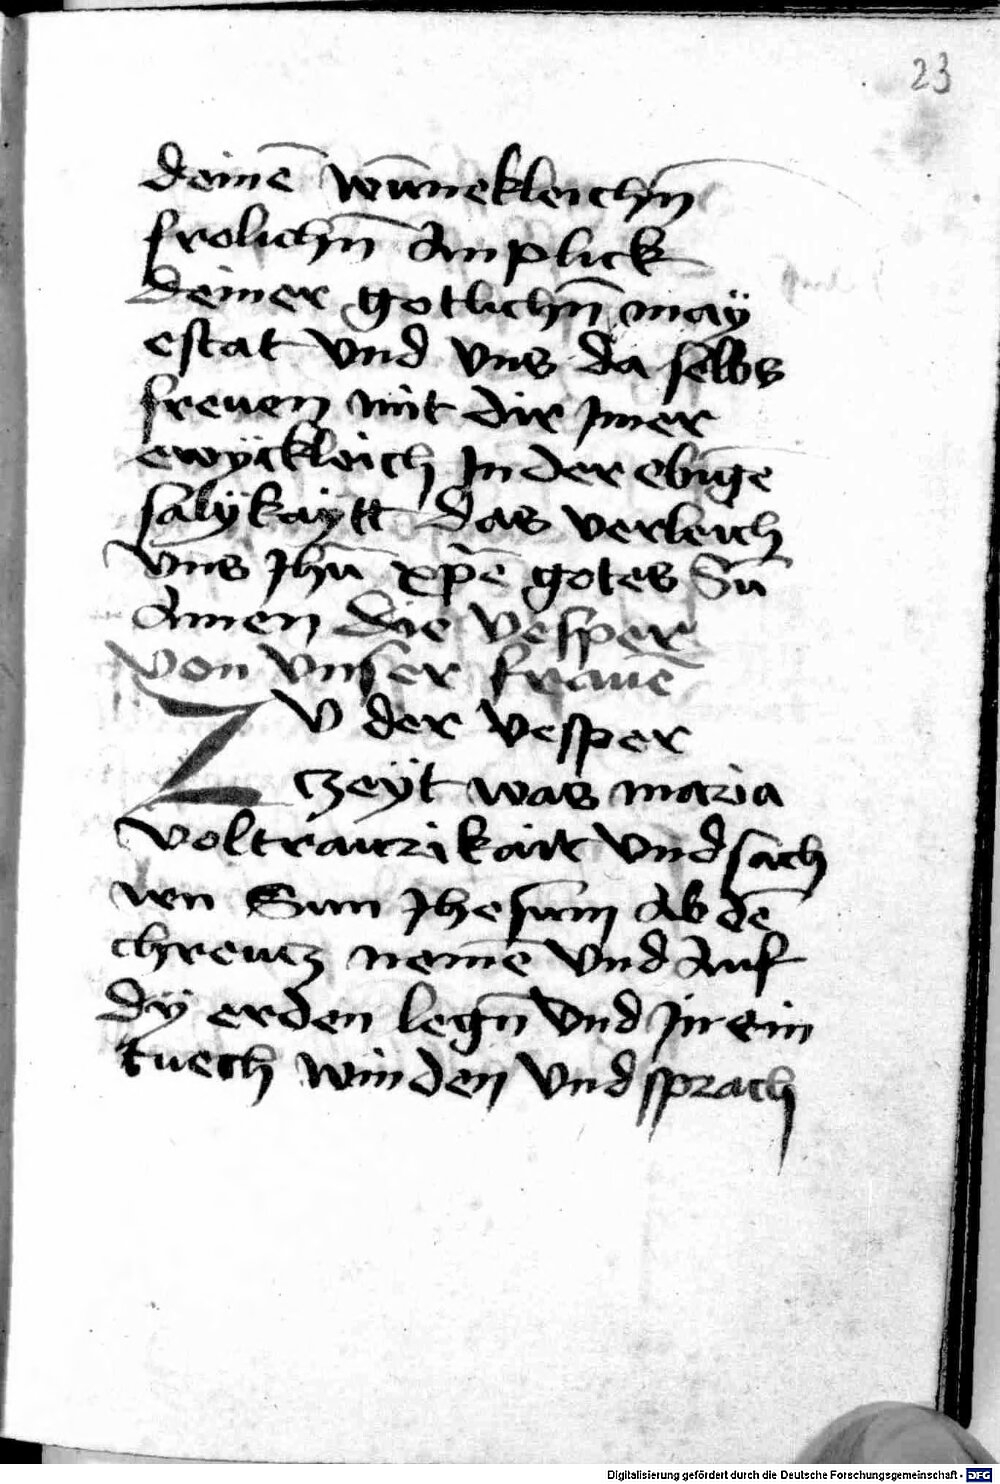 23
deinē wūnekleichn̄
frolichn̄ Anplick
deiner gotlichn̄ may
estat vnd vns da selbs
freuen mit dir Jmer
ewÿckleich Jn der ebīgē
salÿkaÿtt das verleich
vns Jhū xp̄e gotes Sū
Amen die vesper
von vnser frauē
ZV der vesper
czeÿt was maria
voltraurikait vnd sach
irn Sun Jhesum Ab dē
chreucz nemē vnd Auf
dÿ erden legn̄ vnd Jn ein
tuech winden vnd sprach
Digitalisierung gefördert durch die Deutsche Forschungsgemeinschaft - DFG